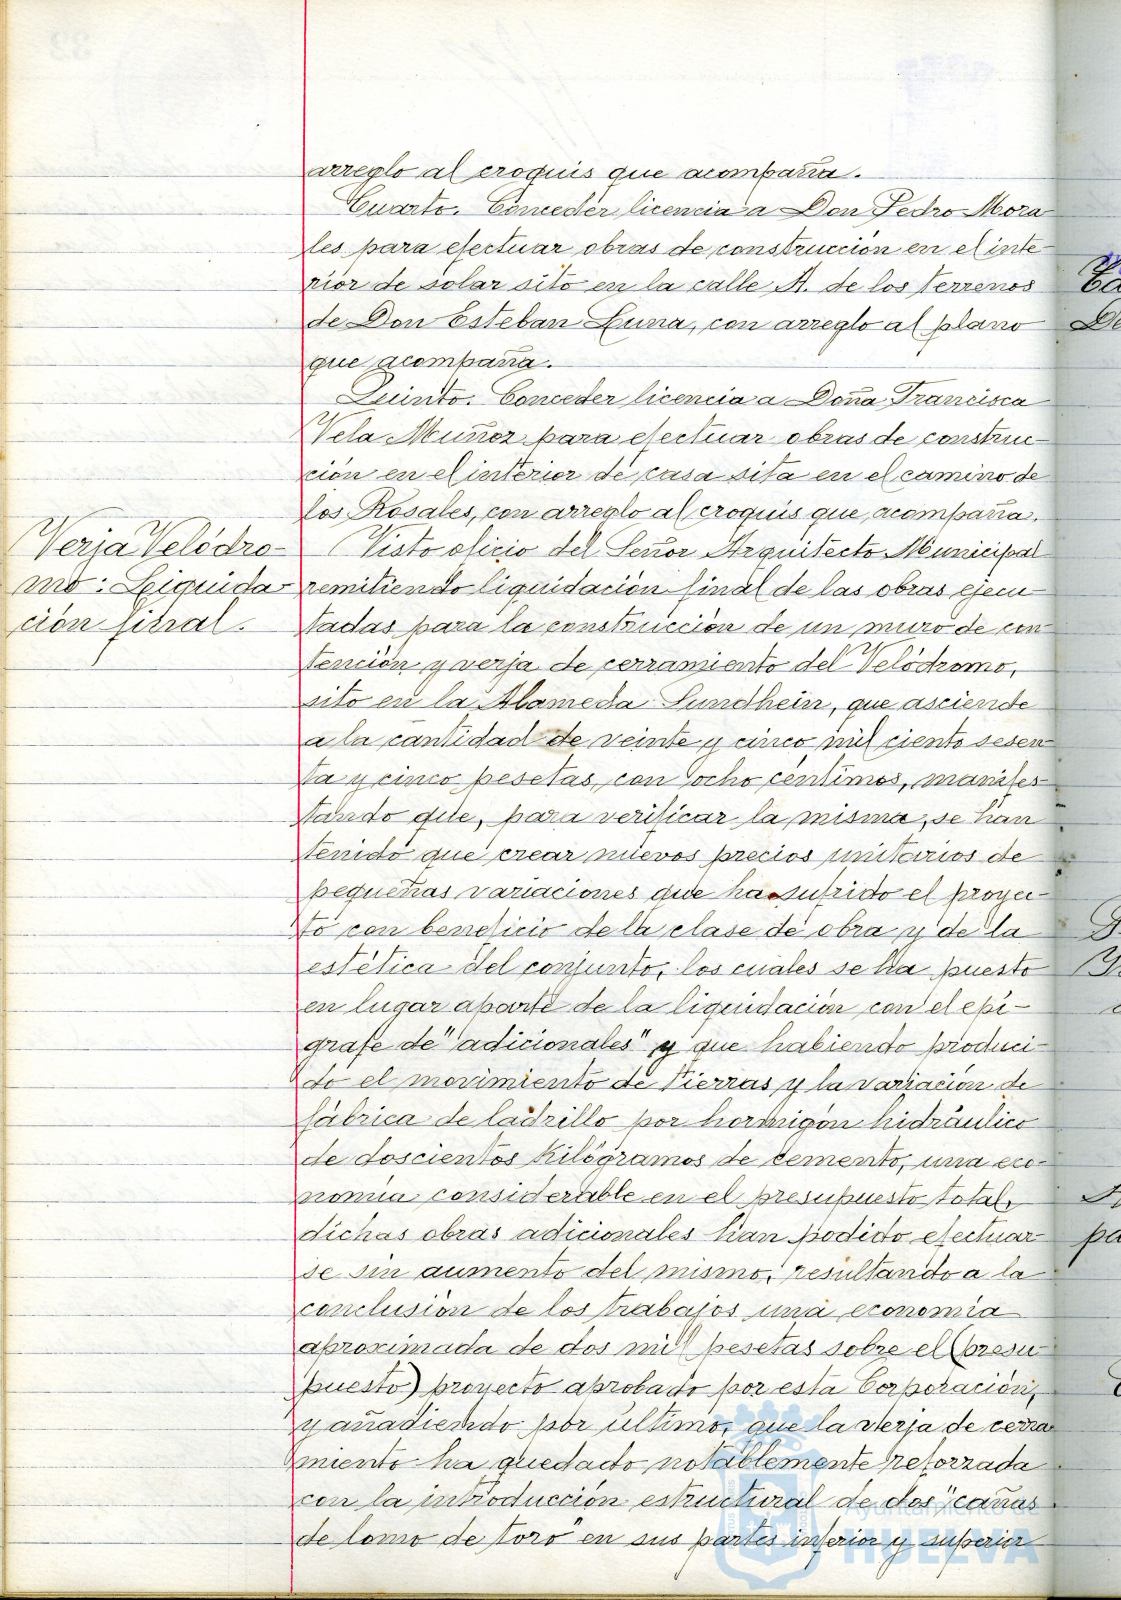 arreglo al croquis que acompaña.
Cuarto. Conceder licencia a Don Pedro Mora
les para efectuar obras de construcción en el inte-
rior de solar sito en la calle A. de los terrenos
de Don Esteban Luna, con arreglo al plano
que acompaña.
Quinto. Conceder licencia a Doña Francisca
Vela Muñoz para efectuar obras de construc-
ción en el interior de casa sita en el camino de
los Rosales, con arreglo al croquis que acompaña.
Verja Velódro-
mo: Liquida-
ción final.
Visto oficio del Señor Arquitecto Municipal
remitiendo liquidación final de las obras ejecu-
tadas para la construcción de un muro de con-
tención y verja de cerramiento del Velódromo,
sito en la Alameda Sundhein, que asciende
a la cantidad de veinte y cinco mil ciento sesen-
ta y cinco pesetas, con ocho céntimos, manifes-
tando que, para verificar la misma, se han
tenido que crear nuevos precios unitarios de
pequeñas variaciones que ha sufrido el proyec-
to con beneficio de la clase de obra y de la
estética del conjunto, los cuales se ha puesto
en lugar aparte de la liquidación con el epí-
grafe de "adicionales" y que habiendo produci-
do el movimiento de tierras y la variación de
fábrica de ladrillo por hormigón hidráulico
de doscientos kilógramos de cemento, una eco-
nomía considerable en el presupuesto total,
dichas obras adicionales han podido efectuar-
se sin aumento del mismo, resultando a la
conclusión de los trabajos una economía
aproximada de dos mil pesetas sobre el (presu-
puesto) proyecto aprobado por esta Corporación,
y añadiendo por último, que la verja de cerra-
miento ha quedado notablemente reforzada
con la introducción estructural de dos "cañas
de lomo de toro" en sus partes inferior y superior
Ayuntamiento de
HUELVA